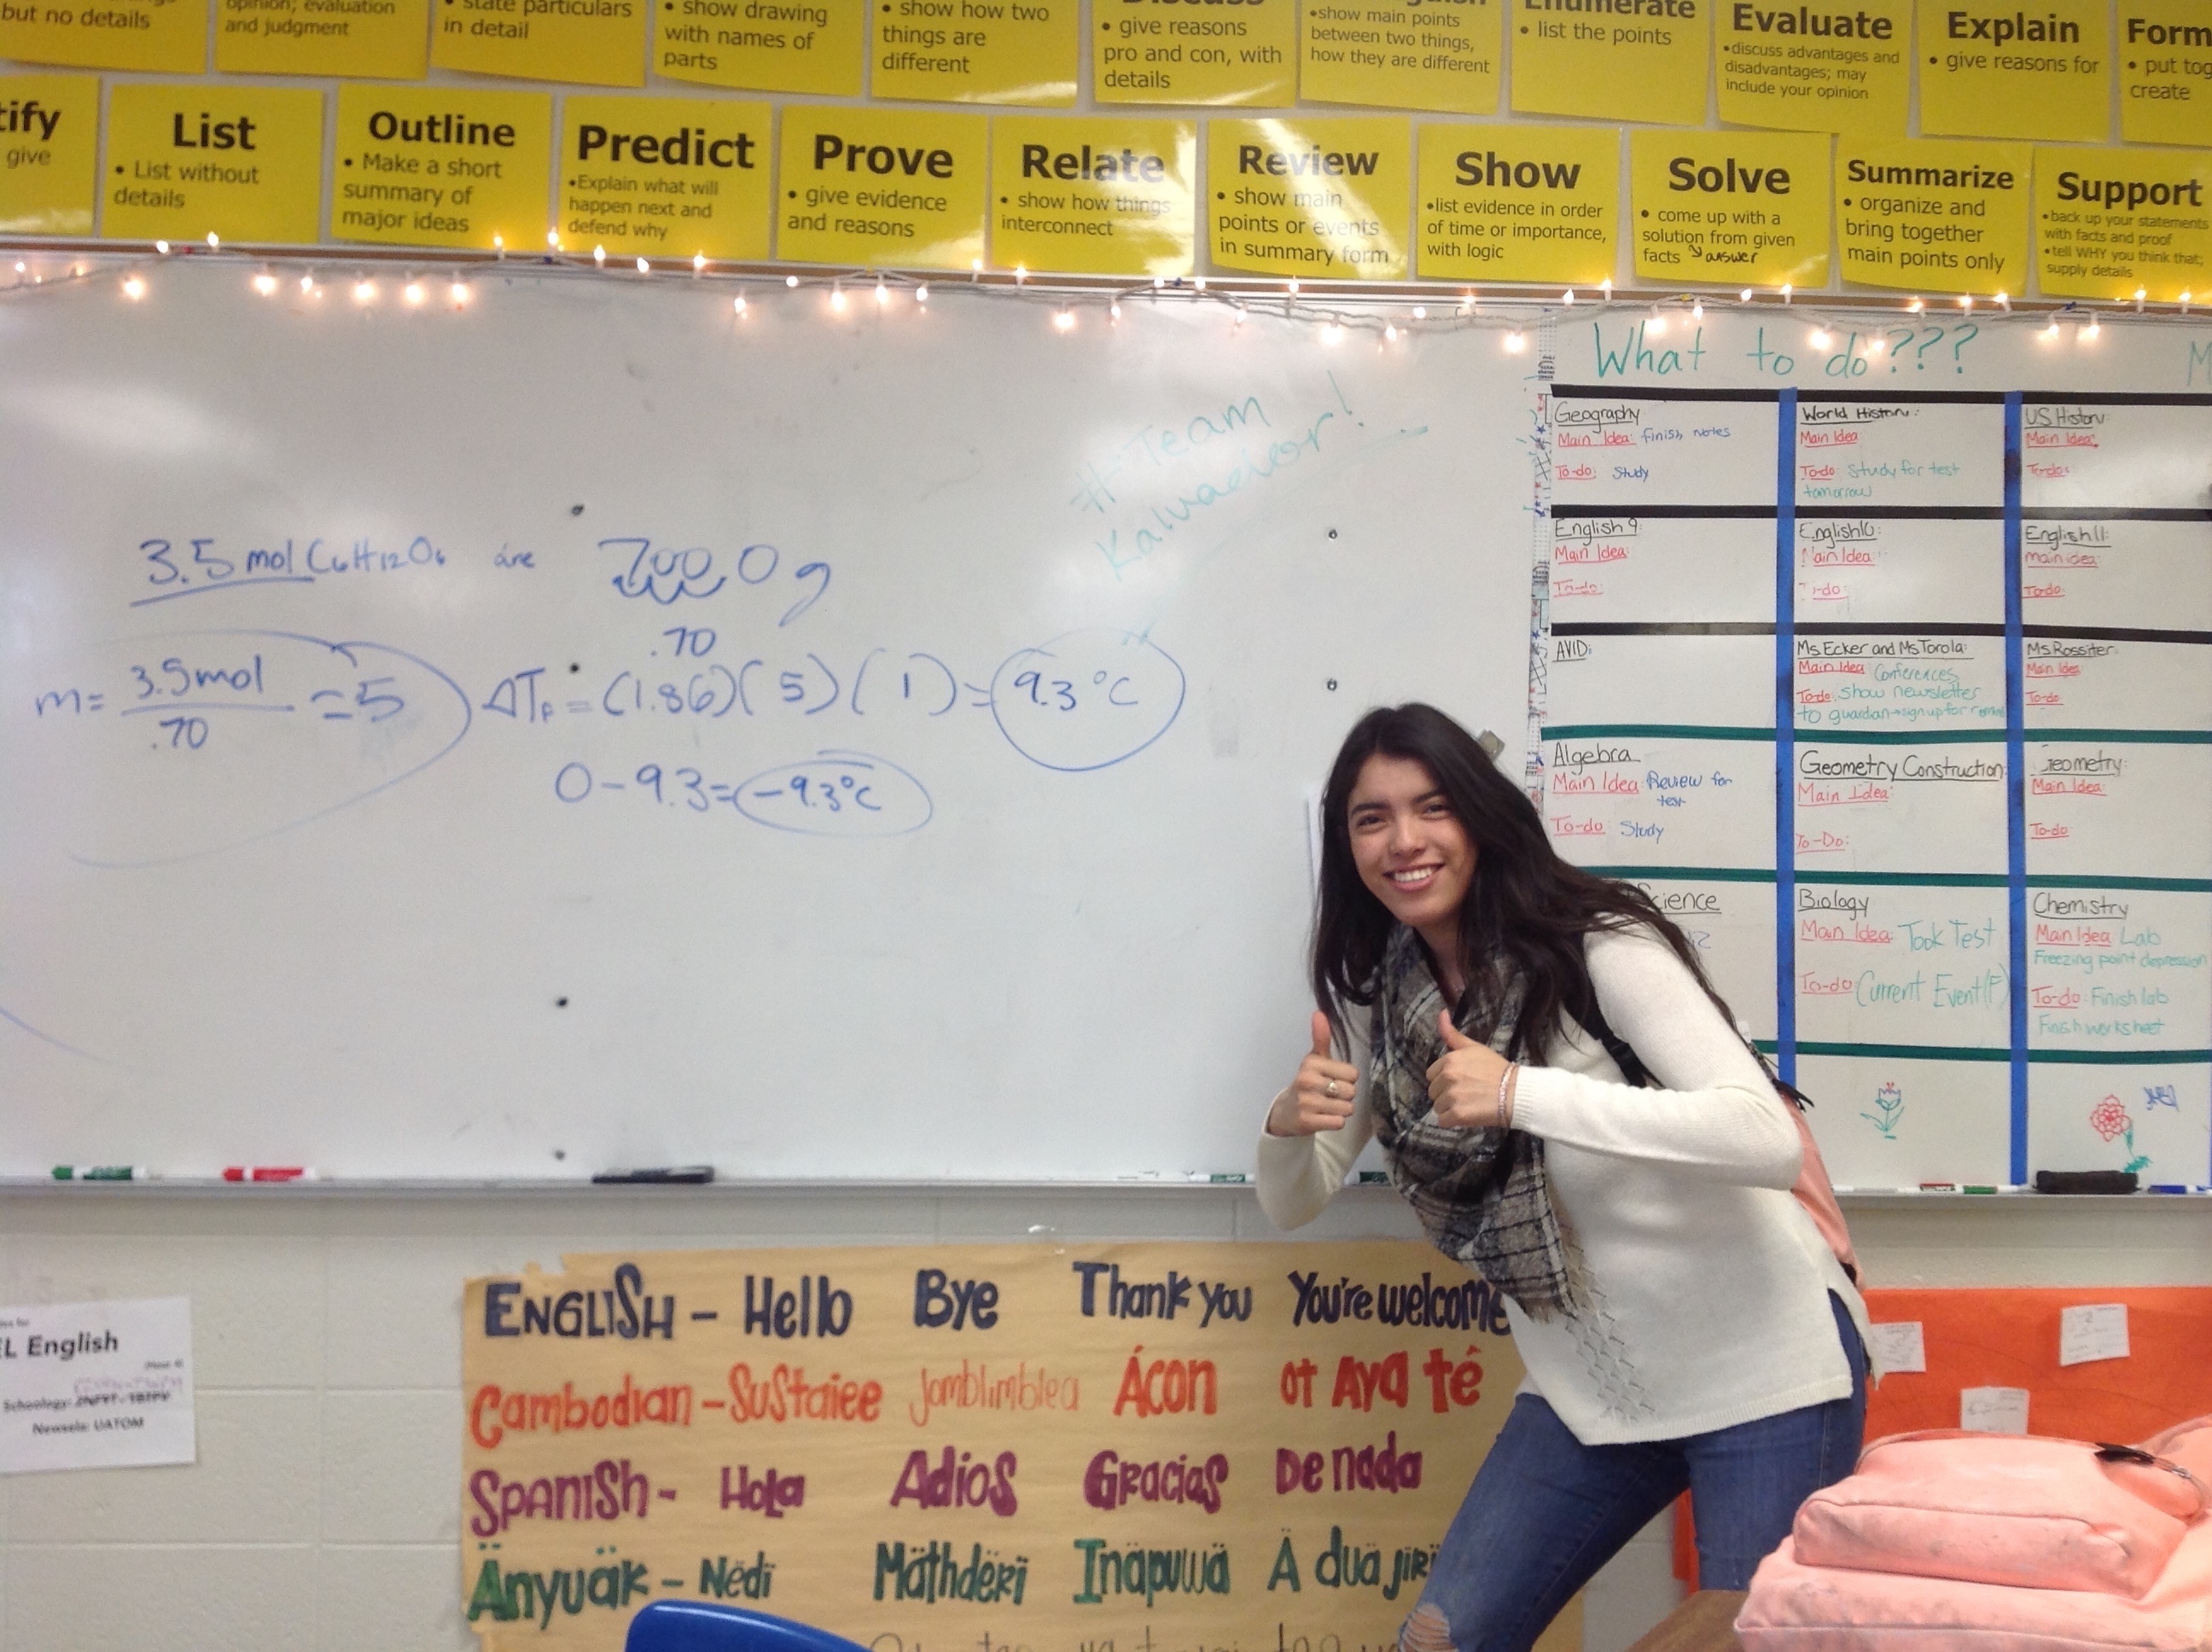 but no details
opinion; evaluation
and judgment
• state particulars
in detail
• show drawing
with names of
parts
• show how two
things are
different
Discuss
• give reasons
pro and con, with
details
•show main points
between two things,
how they are different
Enumerate
• list the points
Evaluate
•discuss advantages and
disadvantages; may
include your opinion
Explain
• give reasons for
Form
• put tog
create
tify
give
List
• List without
details
Outline
• Make a short
summary of
major ideas
Predict
•Explain what will
happen next and
defend why
Prove
• give evidence
and reasons
Relate
• show how things
interconnect
Review
• show main
points or events
in summary form
Show
•list evidence in order
of time or importance,
with logic
Solve
• come up with a
solution from given
facts answer
Summarize
• organize and
bring together
main points only
Support
•back up your statements
with facts and proof
•tell WHY you think that;
supply details
#Team
3.5 mol C6H12O6 are 700.0g
.70
m= 3.5mol
.70
=5
ΔTF = (1.86)(5)(1) = 9.3°C
0-9.3= -9.3°C
What to do???
M
Geography
Main Idea: Finish Notes
To-do: Study
World History:
Main Idea
To-do: Study for test
tomorrow
US History:
Main Idea:
To-do:
English 9:
Main Idea:
To-do:
English10:
Main Idea:
To-do:
English 11:
main idea:
To-do:
AVID:
Ms Ecker and Ms Torola:
Main Idea Conferences
To-do: Show newsletter
to guardian→signup for
Ms Rossiter:
Main Idea:
To-do:
Algebra
Main Idea: Review for
test
To-do: Study
Geometry Construction:
Main Idea:
To-Do:
Geometry:
Main Idea:
To-do:
cience
Biology
Main Idea: Took Test
To-do: Current Event (F)
Chemistry
Main Idea Lab
Freezing point depression
To-do: Finish lab
Finish worksheet
L English
Schoology:
Newsela: UATOM
ENGLISH - Hello Bye Thank you You're welcome
Cambodian - SuStaiee Jomblimblea Ácon ot Aya té
SPANISH - Hola Adios Gracias De nada
Änyuäk - Nëdï Mäthdëri Inäpuwä Ä duä jiri